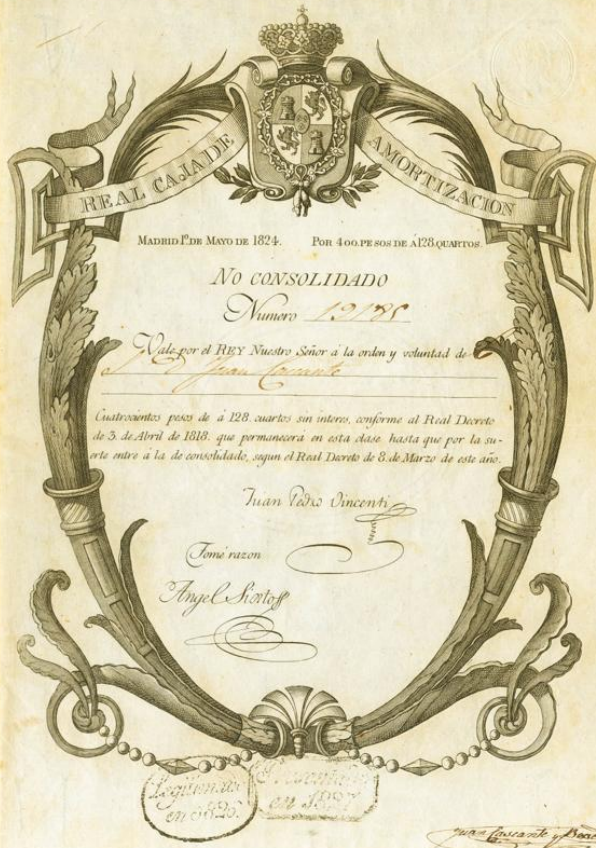 REAL CAJA DE AMORTIZACION
MADRID 1º DE MAYO DE 1824. POR 400. PESOS DE Á 128. QUARTOS.
NO CONSOLIDADO
Numero
Vale por el REY Nuestro Señor á la orden y voluntad de
Juan Cascante
Cuatrocientos pesos de á 128. cuartos sin interes, conforme al Real Decreto
de 3. de Abril de 1818. que permanecerá en esta clase hasta que por la su-
erte entre á la de consolidado, segun el Real Decreto de 8. de Marzo de este año.
Juan Pedro Vincenti
Tomé razon
Angel
en 1825.
en
Juan Cascante y